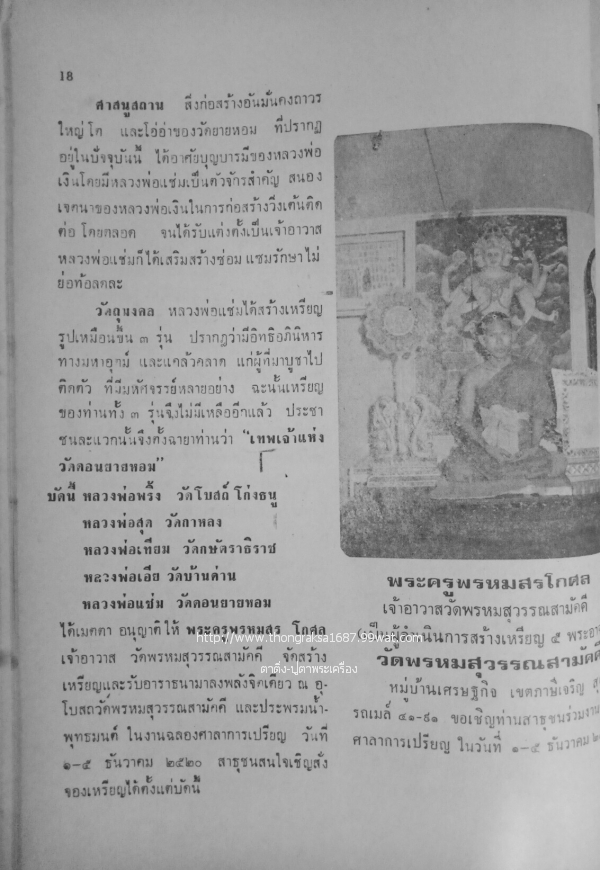 18
ศาสนูสถาน สิ่งก่อสร้างอันมั่นคงถาวร
ใหญ่โต และโอ่อ่าของวัดยายหอม ที่ปรากฏ
อยู่ในปัจจุบันนี้ ได้อาศัยบุญบารมีของหลวงพ่อ
เงินโดยมีหลวงพ่อแช่มเป็นตัวจักรสำคัญ สนอง
เจตนาของหลวงพ่อเงินในการก่อสร้างวิ่งเต้นติด
ต่อ โดยตลอด จนได้รับแต่งตั้งเป็นเจ้าอาวาส
หลวงพ่อแช่มก็ได้เสริมสร้างซ่อม แซมรักษาไม่
ย่อท้อลดละ
วัตถุมงคล หลวงพ่อแช่มได้สร้างเหรียญ
รูปเหมือนขึ้น ๓ รุ่น ปรากฏว่ามีอิทธิอภินิหาร
ทางมหาอุฑม์ และแคล้วคลาด แก่ผู้ที่มาบูชาไป
ติดตัว ที่มีมหัศจรรย์หลายอย่าง ฉะนั้นเหรียญ
ของท่านทั้ง ๓ รุ่นจึงไม่มีเหลืออีกแล้ว ประชา
ชนละแวกนั้นจึงตั้งฉายาท่านว่า "เทพเจ้าแห่ง
วัดดอนยายหอม"
บัดนี้ หลวงพ่อพริ้ง วัดโบสถ์ โก่งธนู
หลวงพ่อสุด วัดกาหลง
หลวงพ่อเทียม วัดกษัตราธิราช
หลวงพ่อเอีย วัดบ้านด่าน
หลวงพ่อแช่ม วัดดอนยายหอม
ได้เมตตา อนุญาติให้ พระครูพรหมสร โกศล
เจ้าอาวาส วัดพรหมสุวรรณสามัคคี จัดสร้าง
เหรียญและรับอาราธนามาลงพลังจิตเดียว ณ อุ-
โบสถวัดพรหมสุวรรณสามัคคี และประพรมน้ำ-
พุทธมนต์ ในงานฉลองศาลาการเปรียญ วันที่
๑-๕ ธันวาคม ๒๕๒๐ สาธุชนสนใจเชิญสั่ง
จองเหรียญได้ตั้งแต่บัดนี้
พระครูพรหมสรโกศล
เจ้าอาวาสวัดพรหมสุวรรณสามัคคี
(เป็นผู้ดำเนินการสร้างเหรียญ ๕ พระอา
วัดพรหมสุวรรณสามัคคี
หมู่บ้านเศรษฐกิจ เขตภาษีเจริญ
รถเมล์ ๔๑-๙๑ ขอเชิญท่านสาธุชนร่วมงาน
ศาลาการเปรียญ ในวันที่ ๑-๕ ธันวาคม
http://www.thongraksa1687.99wat.com/
ดาดึ่ง-ปูตาพระเครื่อง